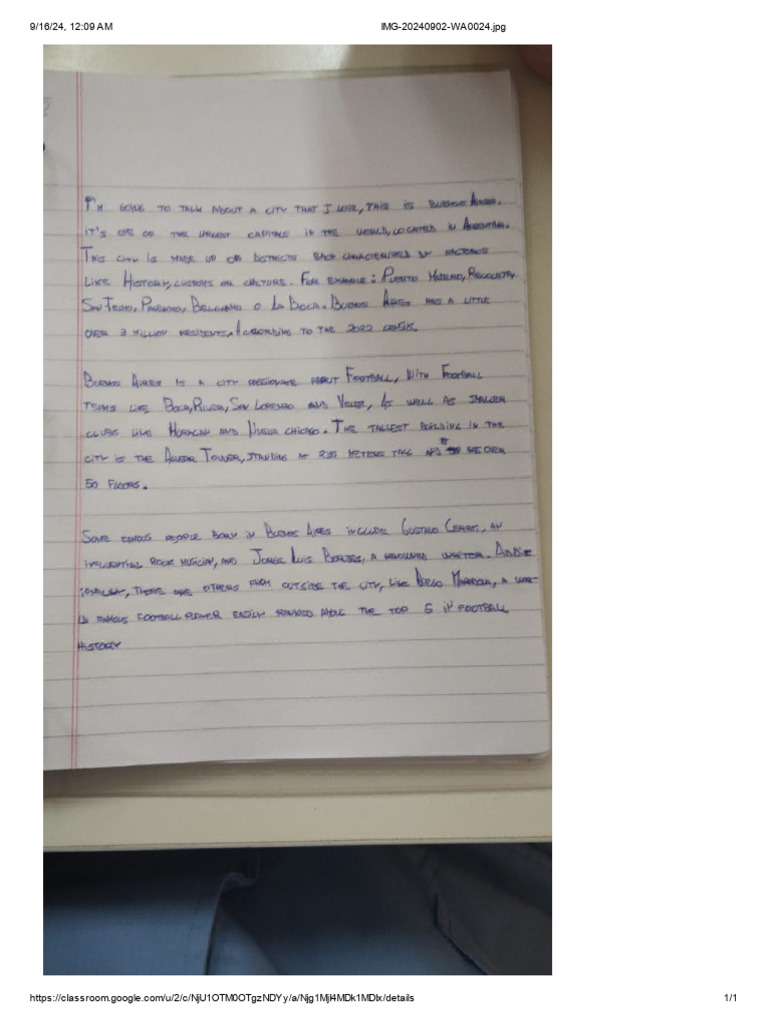 9/16/24, 12:09 AM IMG-20240902-WA0024.jpg
I'M GOING TO TALK ABOUT A CITY THAT I LOVE, THIS IS BUENOS AIRES.
IT'S ONE OF THE LARGEST CAPITALS IN THE WORLD, LOCATED IN ARGENTINA.
THIS CITY IS MADE UP OF DISTRICTS EACH CHARACTERISED BY FACTORS
LIKE HISTORY, CUSTOMS OR CULTURE. FOR EXAMPLE: PUERTO MADERO, RECOLETA,
SAN TELMO, PALERMO, BELGRANO O LA BOCA. BUENOS AIRES HAS A LITTLE
OVER 3 MILLION RESIDENTS, ACCORDING TO THE 2022
BUENOS AIRES IS A CITY PASSIONATE ABOUT FOOTBALL, WITH FOOTBALL
TEAMS LIKE BOCA, RIVER, SAN LORENZO AND VELEZ, AS WELL AS SMALLER
CLUBS LIKE HURACAN AND NUEVA CHICAGO. THE TALLEST BUILDING IN THE
CITY IS THE ALVEAR TOWER, STANDING AT 235 METERS TALL AND OVER
50 FLOORS.
SOME FAMOUS PEOPLE BORN IN BUENOS AIRES INCLUDE GUSTAVO CERATI, AN
INFLUENTIAL ROCK MUSICIAN, AND JORGE LUIS BORGES, A RENOWNED WRITER.
THERE ARE OTHERS FROM OUTSIDE THE CITY, LIKE DIEGO A
FAMOUS FOOTBALL PLAYER EASILY RANKED THE TOP 5 IN FOOTBALL
HISTORY
https://classroom.google.com/u/2/c/NjU1OTM0OTgzNDYy/a/Njg1Mjl4MDk1MDlx/details 1/1